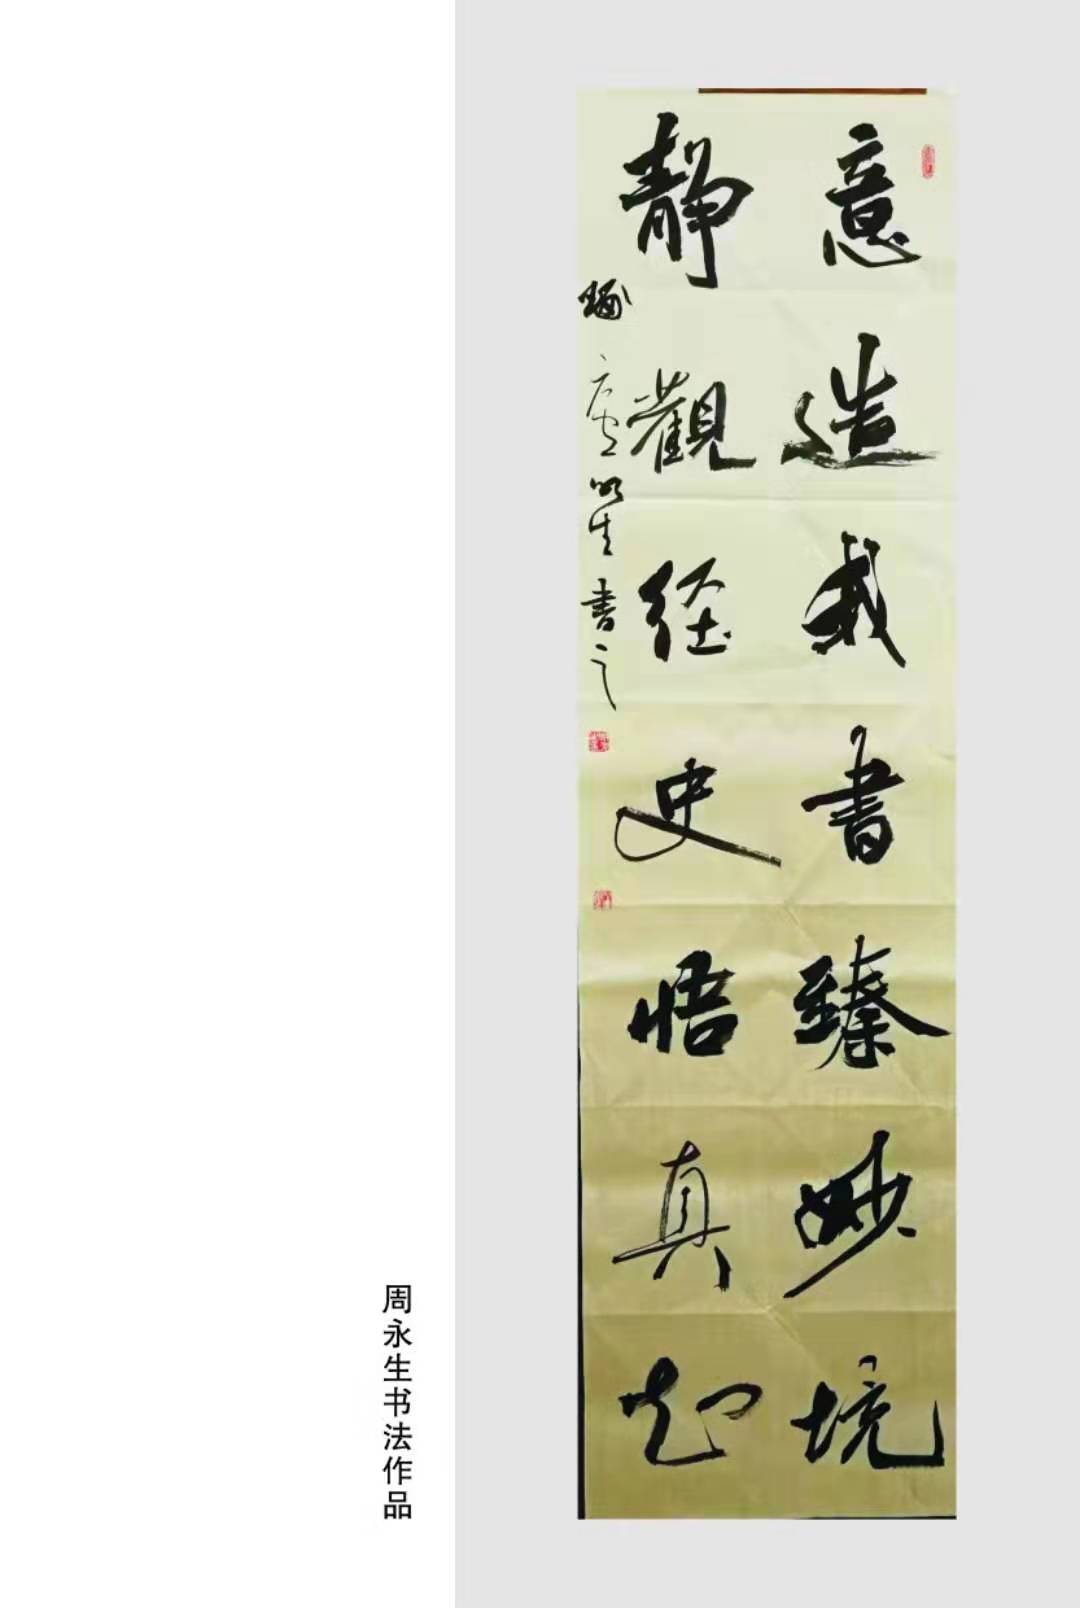 意造我書臻妙境
静觀経史悟真知
永生書之
周永生书法作品